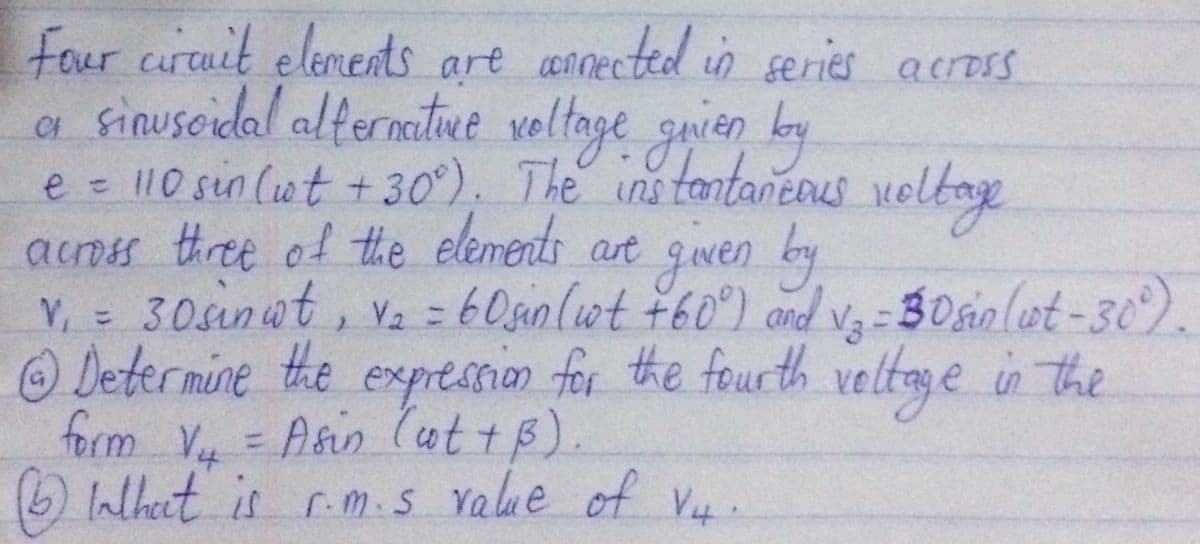 Four circuit elements are connected in series across
a sinusoidal alternative voltage given by
e = 110 sin (ωt + 30°). The instantaneous voltage
across three of the elements are given by
V₁ = 30 sin ωt, V₂ = 60 sin (ωt + 60°) and V₃ = 30 sin (ωt - 30°).
ⓐ Determine the expression for the fourth voltage in the
form V₄ = A sin (ωt + β).
ⓑ What is r.m.s value of V₄.